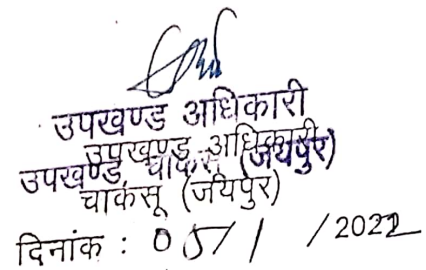 उपखण्ड अधिकारी
उपखण्ड अधिकारी
उपखण्ड, चाकसू (जयपुर)
चाकसू (जयपुर)
दिनांक : / /2022